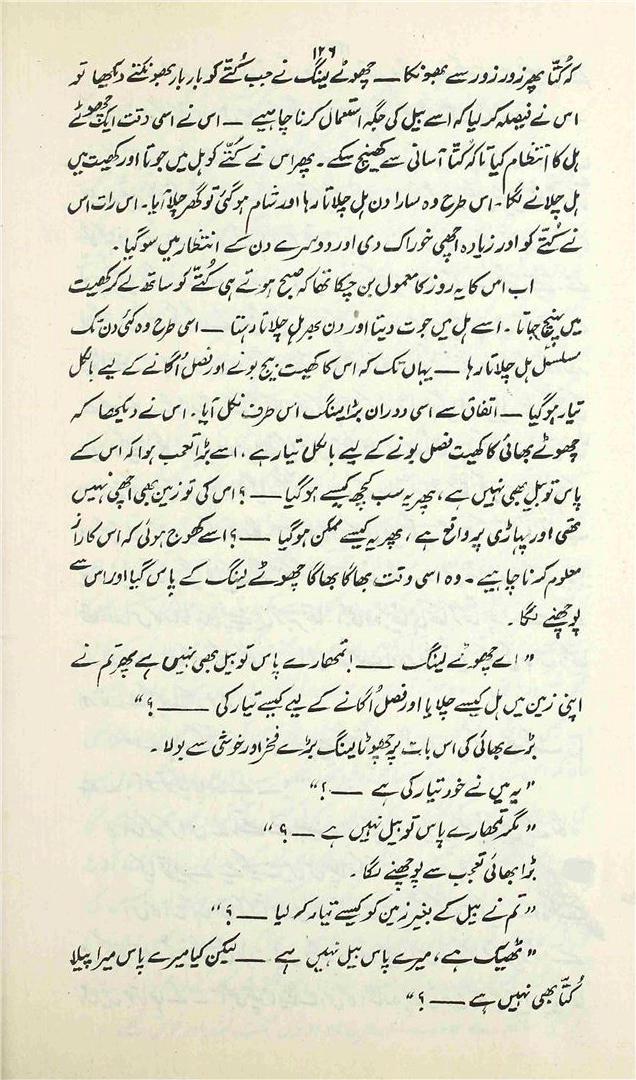 ۱۲۶
کہ کُتّا پھر زور زور سے بھونکا ـــ چھوٹے ینگ نے جب کُتّے کو بار بار بھونکتے دیکھا تو
اس نے فیصلہ کر لیا کہ اسے بیل کی جگہ استعمال کرنا چاہیے ـــ اس نے اسی وقت ایک چھوٹے
ہل کا انتظام کیا تاکہ کُتّا آسانی سے کھینچ سکے۔ پھر اس نے کُتّے کو ہل میں جوتا اور کھیت میں
ہل چلانے لگا۔ اس طرح وہ سارا دن ہل چلاتا رہا اور شام ہو گئی تو گھر چلا آیا۔ اس رات اس
نے کُتّے کو اور زیادہ اچھی خوراک دی اور دوسرے دن کے انتظار میں سو گیا۔
اب اس کا یہ روز کا معمول بن چکا تھا کہ صبح ہوتے ہی کُتّے کو ساتھ لے کر کھیت
میں پہنچ جاتا۔ اسے ہل میں جوت دیتا اور دن بھر ہل چلاتا رہتا ـــ اسی طرح وہ کئی دن تک
مسلسل ہل چلاتا رہا ـــ یہاں تک کہ اس کا کھیت بیج بونے اور فصل اُگانے کے لیے بالکل
تیار ہو گیا ـــ اتفاق سے اسی دوران بڑا ینگ اس طرف نکل آیا۔ اس نے دیکھا کہ
چھوٹے بھائی کا کھیت فصل بونے کے لیے بالکل تیار ہے، اسے بڑا تعجب ہوا کہ اس کے
پاس تو بیل بھی نہیں ہے، پھر یہ سب کچھ کیسے ہو گیا ـــ؟ اس کی تو زمین بھی اچھی نہیں
تھی اور پہاڑی پر واقع ہے، پھر یہ کیسے ممکن ہو گیا ـــ؟ اسے کھوج ہوئی کہ اس کا راز
معلوم کرنا چاہیے۔ وہ اسی وقت بھاگا بھاگا چھوٹے ینگ کے پاس گیا اور اس سے
پوچھنے لگا۔
”اے چھوٹے ینگ ـــ! تمھارے پاس تو بیل بھی نہیں ہے پھر تم نے
اپنی زمین میں ہل کیسے چلایا اور فصل اُگانے کے لیے کیسے تیار کی ـــ؟“
بڑے بھائی کی اس بات پر چھوٹا ینگ بڑے فخر اور خوشی سے بولا۔
”یہ میں نے خود تیار کی ہے ـــ!“
”مگر تمھارے پاس تو بیل نہیں ہے ـــ؟“
بڑا بھائی تعجب سے پوچھنے لگا۔
”تم نے بیل کے بغیر زمین کو کیسے تیار کر لیا ـــ؟“
”ٹھیک ہے، میرے پاس بیل نہیں ہے ـــ لیکن کیا میرے پاس میرا پیلا
کُتّا بھی نہیں ہے ـــ؟“